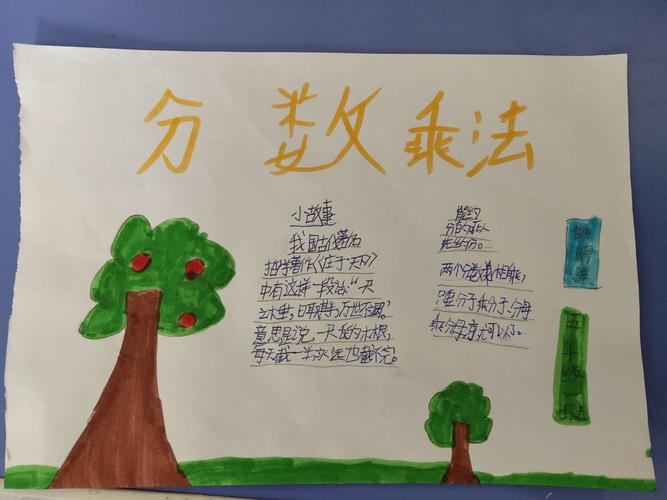 分数乘法
小故事
我国古代著名
哲学著作《庄子·天下》
中有这样一段话:“一尺
之棰,日取其半,万世不竭。”
意思是说,一尺长的木棍,
每天截一半,永远也截不完。
能约
分的
先约分。
两个分数相乘,
分子乘分子,分母
乘分母 可以了。
五年级一班